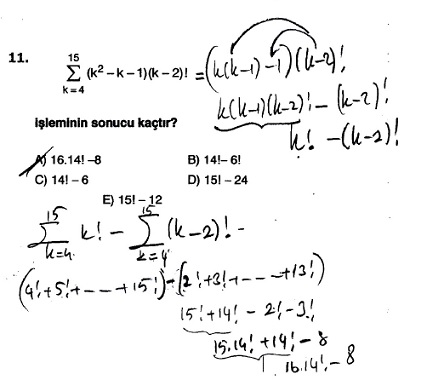 11.
15
∑ (k² – k – 1)(k – 2)! = (k(k-1) - 1)(k-2)!
k = 4
k(k-1)(k-2)! - (k-2)!
k! - (k-2)!
işleminin sonucu kaçtır?
A) 16.14! – 8 B) 14! – 6!
C) 14! – 6 D) 15! – 24
E) 15! – 12
15 15
∑ k! - ∑ (k-2)! -
k=4 k=4
(4! + 5! + --- + 15!) - (2! + 3! + --- + 13!)
15! + 14! - 2! - 3!
15.14! + 14! - 8
16.14! - 8